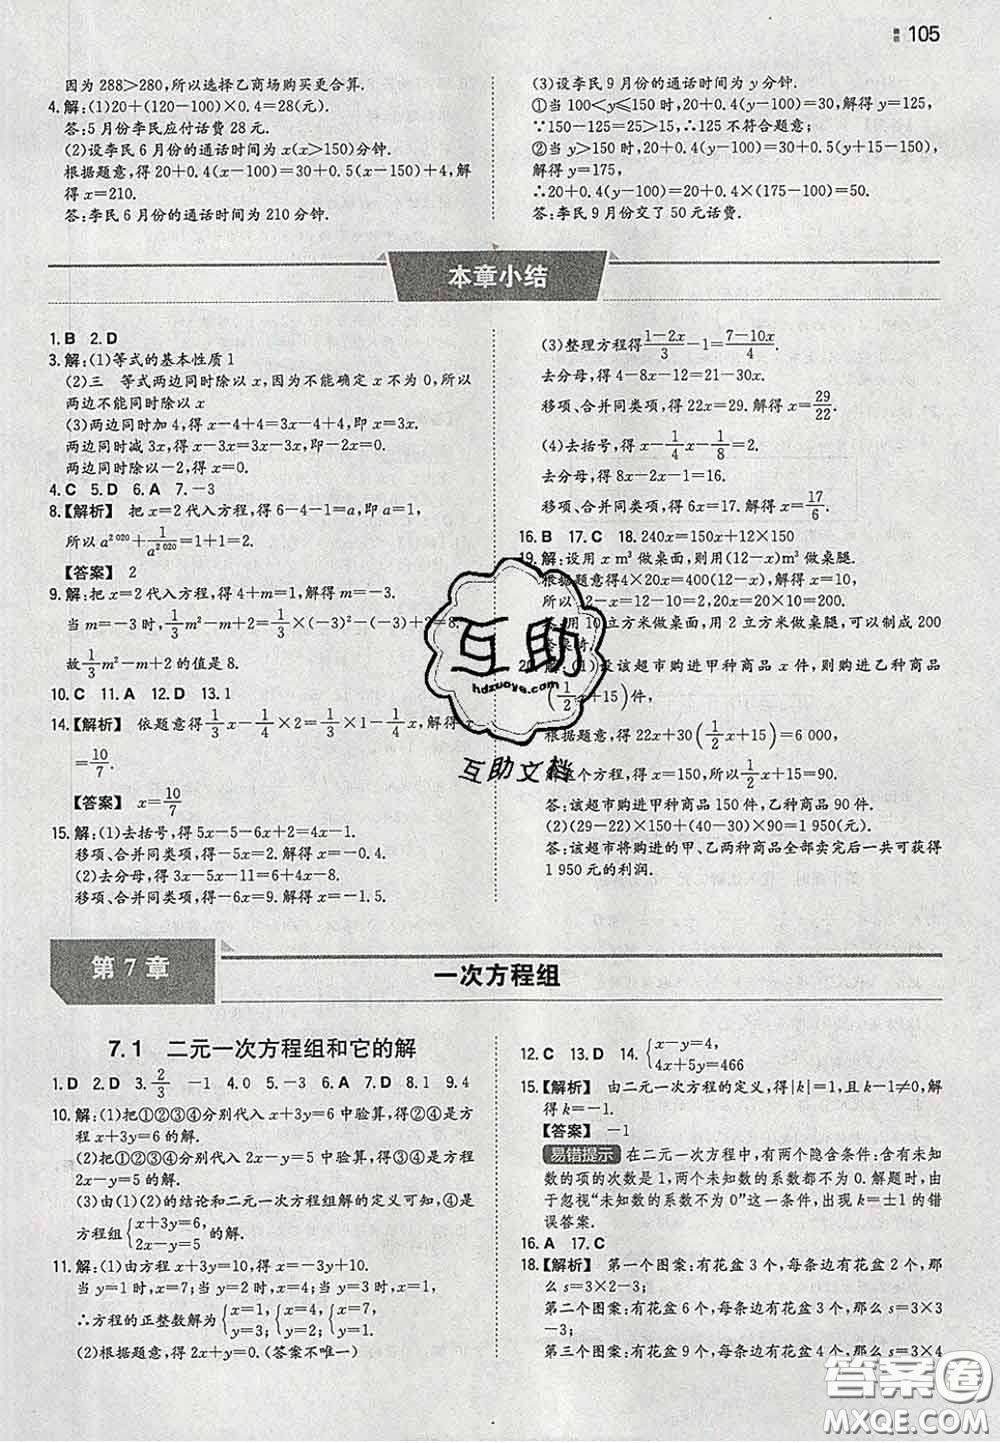 105
因为 288>280,所以选择乙商场购买更合算.
4.解:(1)20+(120-100)×0.4=28(元).
答:5 月份李民应付话费 28 元.
(2)设李民 6 月份的通话时间为 x(x>150)分钟.
根据题意,得 20+0.4(x-100)=30+0.5(x-150)+4,解
得 x=210.
答:李民 6 月份的通话时间为 210 分钟.
(3)设李民 9 月份的通话时间为 y 分钟.
①当 100<y≤150 时,20+0.4(y-100)=30,解得 y=125,
∵150-125=25>15,∴125 不符合题意;
②当 y>150 时,20+0.4(y-100)=30+0.5(y+15-150),
解得 y=175,
∴20+0.4(y-100)=20+0.4×(175-100)=50.
答:李民 9 月份交了 50 元话费.
本章小结
1.B 2.D
3.解:(1)等式的基本性质 1
(2)三 等式两边同时除以 x,因为不能确定 x 不为 0,所以
两边不能同时除以 x
(3)两边同时加 4,得 x-4+4=3x-4+4,即 x=3x.
两边同时减 3x,得 x-3x=3x-3x,即-2x=0.
两边同时除以-2,得 x=0.
4.C 5.D 6.A 7.-3
8.【解析】 把 x=2 代入方程,得 6-4-1=a,即 a=1,
所以 a^{2 020}+\frac{1}{a^{2 020}}=1+1=2.
【答案】 2
9.解:把 x=2 代入方程,得 4+m=1,解得 m=-3.
当 m=-3 时,\frac{1}{3}m²-m+2=\frac{1}{3}×(-3)²-(-3)+2=8.
故\frac{1}{3}m²-m+2 的值是 8.
10.C 11.A 12.D 13.1
14.【解析】 依题意得\frac{1}{3}x-\frac{1}{4}×2=\frac{1}{3}×1-\frac{1}{4}x,解得 x
=\frac{10}{7}.
【答案】 x=\frac{10}{7}
15.解:(1)去括号,得 5x-5-6x+2=4x-1.
移项、合并同类项,得-5x=2.解得 x=-0.4.
(2)去分母,得 3x-5x-11=6+4x-8.
移项、合并同类项,得-6x=9.解得 x=-1.5.
(3)整理方程得\frac{1-2x}{3}-1=\frac{7-10x}{4}.
去分母,得 4-8x-12=21-30x.
移项、合并同类项,得 22x=29.解得 x=\frac{29}{22}.
(4)去括号,得 x-\frac{1}{4}x-\frac{1}{8}=2.
去分母,得 8x-2x-1=16.
移项、合并同类项,得 6x=17.解得 x=\frac{17}{6}.
16.B 17.C 18.240x=150x+12×150
19.解:设用 x m³ 做桌面,则用(12-x)m³ 做桌腿.
根据题意,得 4×20x=400(12-x),解得 x=10,
所以 12-x=12-10=2.
答:用 10 立方米做桌面,用 2 立方米做桌腿,可以制成 200
套桌椅.
20.解:(1)设该超市购进甲种商品 x 件,则购进乙种商品
(\frac{1}{2}x+15)件,
根据题意,得 22x+30(\frac{1}{2}x+15)=6 000,
解这个方程,得 x=150,则\frac{1}{2}x+15=90.
答:该超市购进甲种商品 150 件,乙种商品 90 件.
(2)(29-22)×150+(40-30)×90=1 950(元).
答:该超市将购进的甲、乙两种商品全部卖完后一共可获得
1 950 元的利润.
互助
hdzuoye.com
互助文档
第 7 章 一次方程组
7.1 二元一次方程组和它的解
1.D 2.D 3.\frac{2}{3} -1 4.0 5.-3 6.A 7.D 8.1 9.4
10.解:(1)把①②③④分别代入 x+3y=6 中验算,得②④是方
程 x+3y=6 的解.
(2)把①②③④分别代入 2x-y=5 中验算,得③④是方程
2x-y=5 的解.
(3)由(1)(2)的结论和二元一次方程组解的定义可知,④是
方程组{x+3y=6, 2x-y=5 的解.
11.解:(1)由方程 x+3y=10,得 x=-3y+10.
当 y=1 时,x=7;当 y=2 时,x=4;当 y=3 时,x=1.
∴方程的正整数解为{x=1, y=3; {x=4, y=2; {x=7, y=1.
(2)根据题意,得 2x+y=0.(答案不唯一)
12.C 13.D 14.{x-y=4, 4x+5y=466
15.【解析】 由二元一次方程的定义,得|k|=1,且 k-1≠0,
解得 k=-1.
【答案】 -1
易错提示 在二元一次方程中,有两个隐含条件:含有未知
数的项的次数是 1,两个未知数的系数都不为 0.解题时,由
于忽视“未知数的系数不为 0”这一条件,出现 k=±1 的错
误答案.
16.A 17.C
18.【解析】 第一个图案:有花盆 3 个,每条边有花盆 2 个,那
么 s=3×2-3;
第二个图案:有花盆 6 个,每条边有花盆 3 个,那么 s=3×3
-3;
第三个图案:有花盆 9 个,每条边有花盆 4 个,那么 s=3×4
答案圈
MXQE.COM